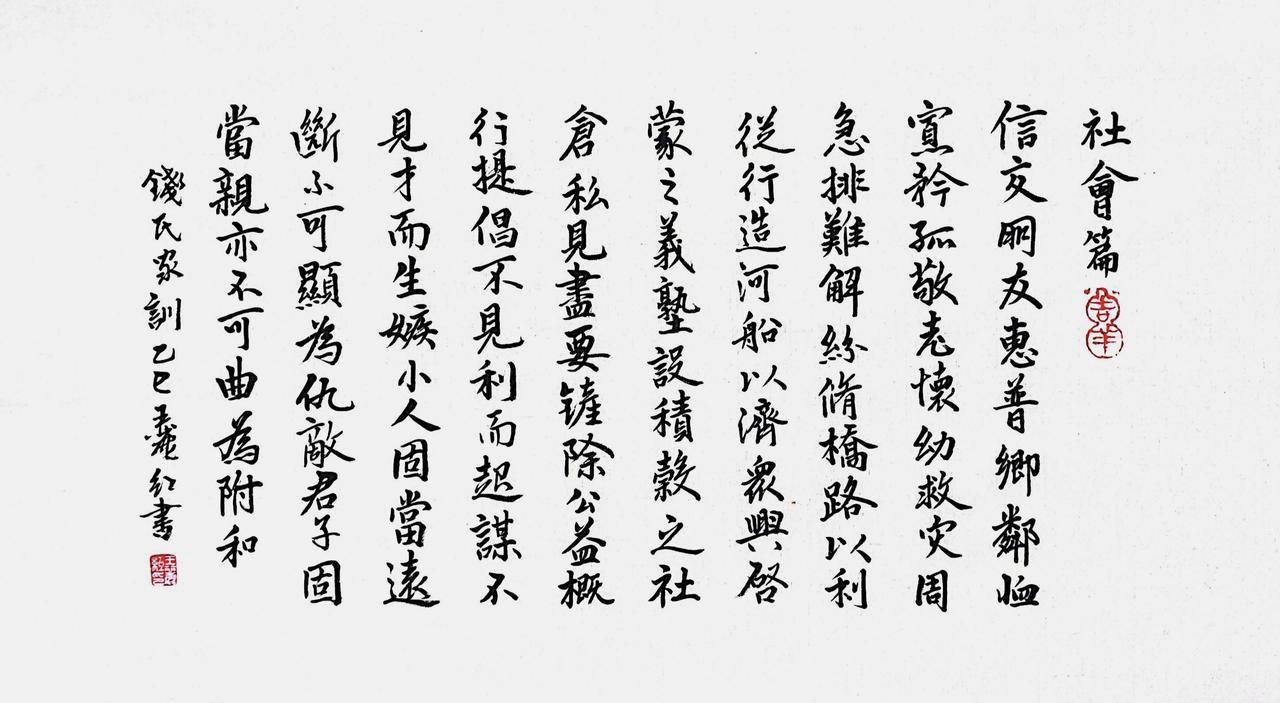 社會篇
吉羊
信交朋友惠普鄉鄰恤
寡矜孤敬老懷幼救災周
急排難解紛脩橋路以利
從行造河船以濟眾興啓
蒙之義塾設積穀之社
倉私見盡要鏟除公益概
行提倡不見利而起謀不
見才而生嫉小人固當遠
斷不可顯為仇敵君子固
當親亦不可曲為附和
錢氏家訓乙巳紅書